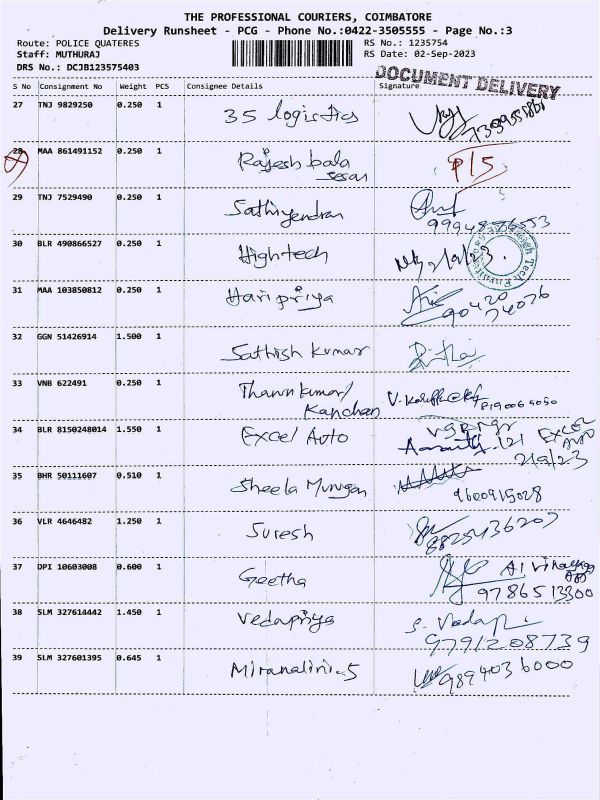 THE PROFESSIONAL COURIERS, COIMBATORE
Delivery Runsheet - PCG - Phone No.:0422-3505555 - Page No.:3
Route: POLICE QUATERES
RS No.: 1235754
Staff: MUTHURAJ
RS Date: 02-Sep-2023
DRS No.: DCJB123575403
DOCUMENT DELIVERY
S No Consignment No Weight PCS Consignee Details Signature
27 TNJ 9829250 0.250 1 35 logistics
28 MAA 861491152 0.250 1 Rajesh bala P/S
sesan
29 TNJ 7529490 0.250 1 Sathiyendran
30 BLR 490866527 0.250 1 Hightech
31 MAA 103850812 0.250 1 Haripriya
90420
74076
32 GGN 51426914 1.500 1 Sathish Kumar
33 VNB 622491 0.250 1 Tharun kumar/
Kanchan
34 BLR 8150248014 1.550 1 Excel Auto EXCEL
AUTO
2/9/23
35 BHR 50111607 0.510 1 Sheela Murugan
9600915028
36 VLR 4646482 1.250 1 Suresh 8825436207
37 DPI 10603008 0.600 1 Geetha
9786513300
38 SLM 327614442 1.450 1 Vedapriya S. Vedapri
9791208739
39 SLM 327601395 0.645 1 Miranalini.S 9894036000